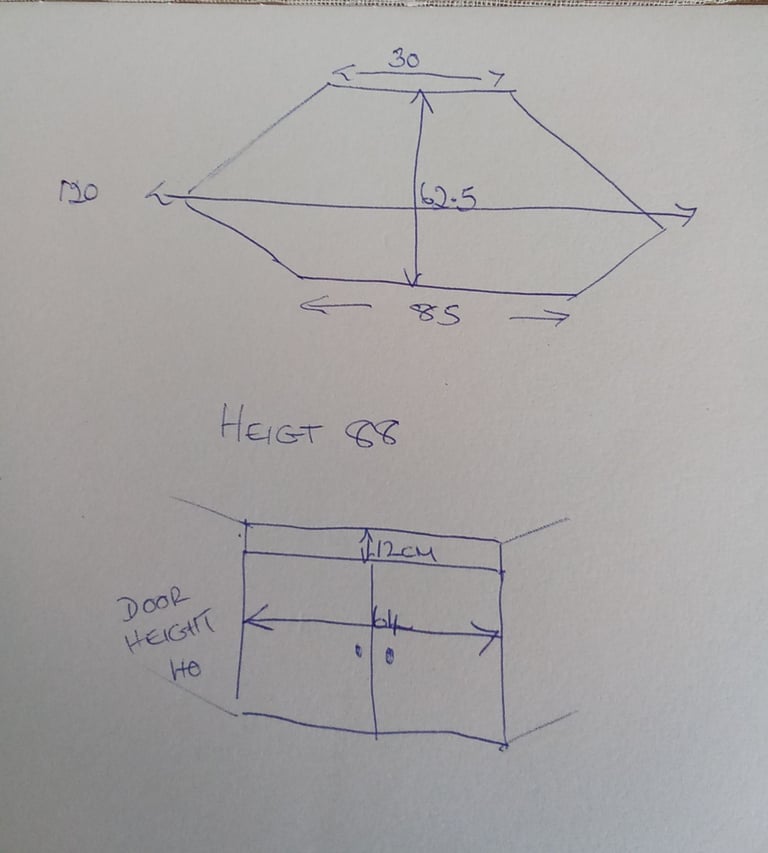 30
120
62.5
85
HEIGT 88
12CM
DOOR
64
HEIGHT